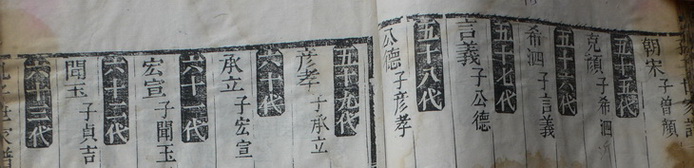 朝宋 子曾顏
五十五代
克頙 子希泗
五十六代
希泗 子言義
五十七代
言義 子公德
五十八代
公德 子彥孝
五十九代
彥孝 子承立
六十代
承立 子宏宣
六十一代
宏宣 子聞玉
六十二代
聞玉 子貞吉
六十三代